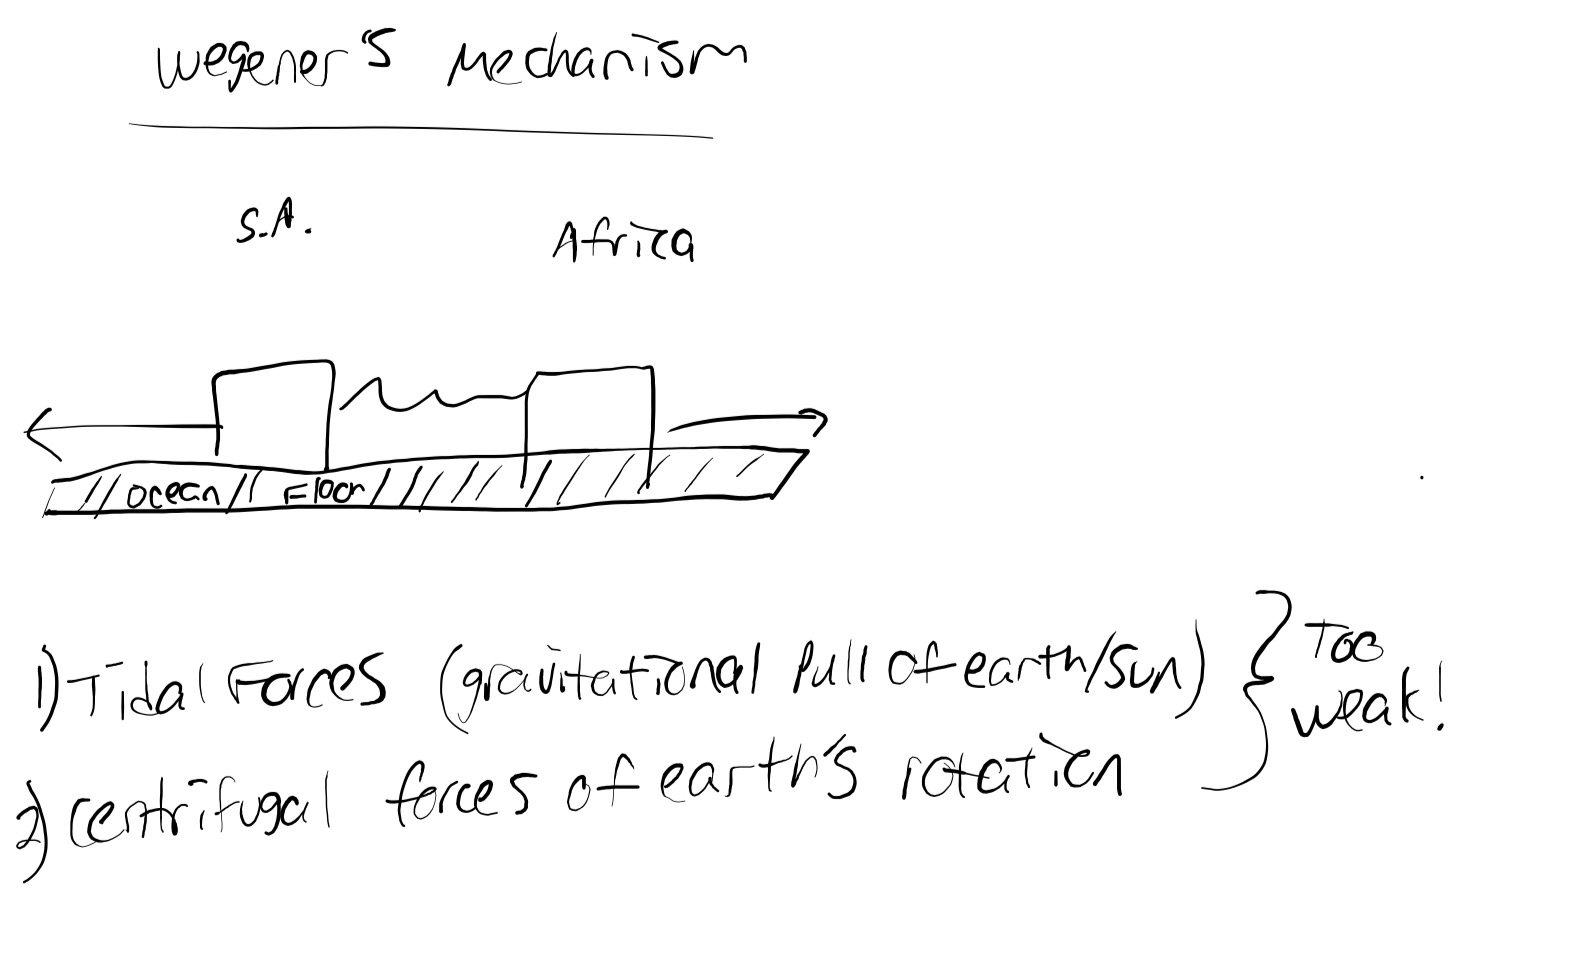 Wegener's Mechanism
S.A.
Africa
Ocean Floor
1) Tidal Forces (gravitational Pull of earth/sun)
Too
weak!
2) centrifugal forces of earth's rotation